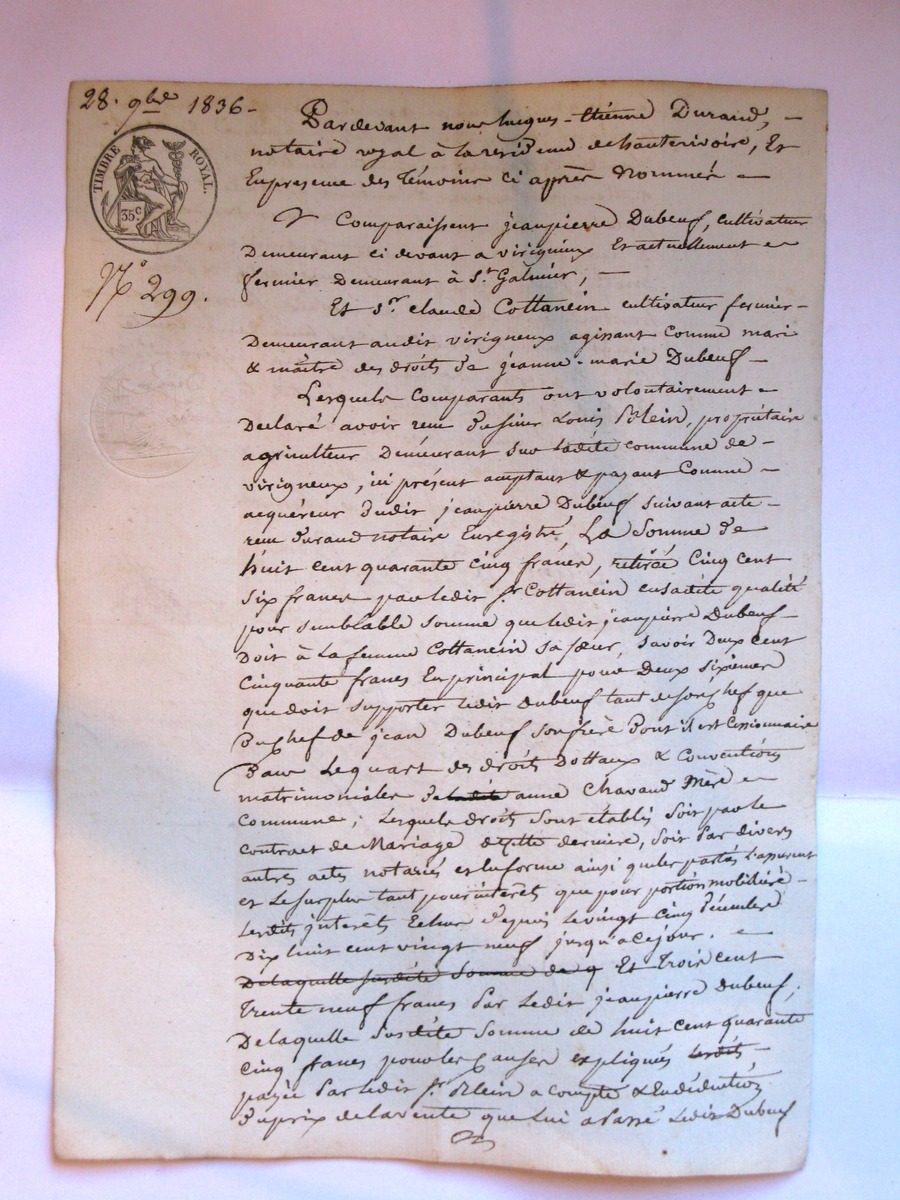 28. 9bre 1836 -
TIMBRE ROYAL.
35c
N° 299.
Pardevant nous hugues - Etienne Durand, -
notaire royal à la residence de hauterivoire, Et
En presence des Témoins ci après Nommés -
Comparaissent jeanpierre Dubeuf, cultivateur
Demeurant ci devant a virigneux Et actuellement -
fermier Demeurant à St. Galmier, -
Et Sr. claude Cottancin cultivateur fermier -
Demeurant audit virigneux agissant Comme mari
& maître des droits de jeanne - marie Dubeuf -
Lesquels Comparants ont volontairement -
Declaré avoir reçu du sieur Louis Blein, propriétaire
agriculteur Demeurant sur ladite commune de -
virigneux, ici présent acceptant & payant Comme -
acquéreur dudit jeanpierre Dubeuf suivant acte -
reçu Durand notaire Enregistré, La Somme de
huit cent quarante cinq francs, retirée Cinq cent
six francs par ledit Sr. Cottancin en sadite qualité
pour semblable somme que ledit jeanpierre Dubeuf -
Doit à La femme Cottancin sa sœur, savoir Deux cent
Cinquante francs En principal pour Deux sixiemes
que doit supporter ledit Dubeuf tant de son chef que
Du chef de jean Dubeuf son frère Dont il est Cessionnaire
Dans Le quart des droits Dottaux & Conventions
matrimoniales de ladite anne Chavand Mère -
Commune; Lesquels droits sont établis soit par le
Contract de Mariage de cette derniere, soit Par divers
autres actes notariés
et Le surplus tant pour intérêts que pour portion mobiliére -
Lesdits intérêts Echus Depuis Le vingt Cinq Décembre
Dix huit cent vingt neuf jusqu'a ce jour. -
Delaquelle susdite Somme de q Et Trois Cent
Trente neuf francs Par Ledit jeanpierre Dubeuf;
De laquelle susdite somme de huit cent quarante
Cinq francs pour les Causes expliqués lesdits -
payée Par Ledit Sr. Blein a compte & En déduction
Du prix de la vente que lui a Passé Ledit Dubeuf